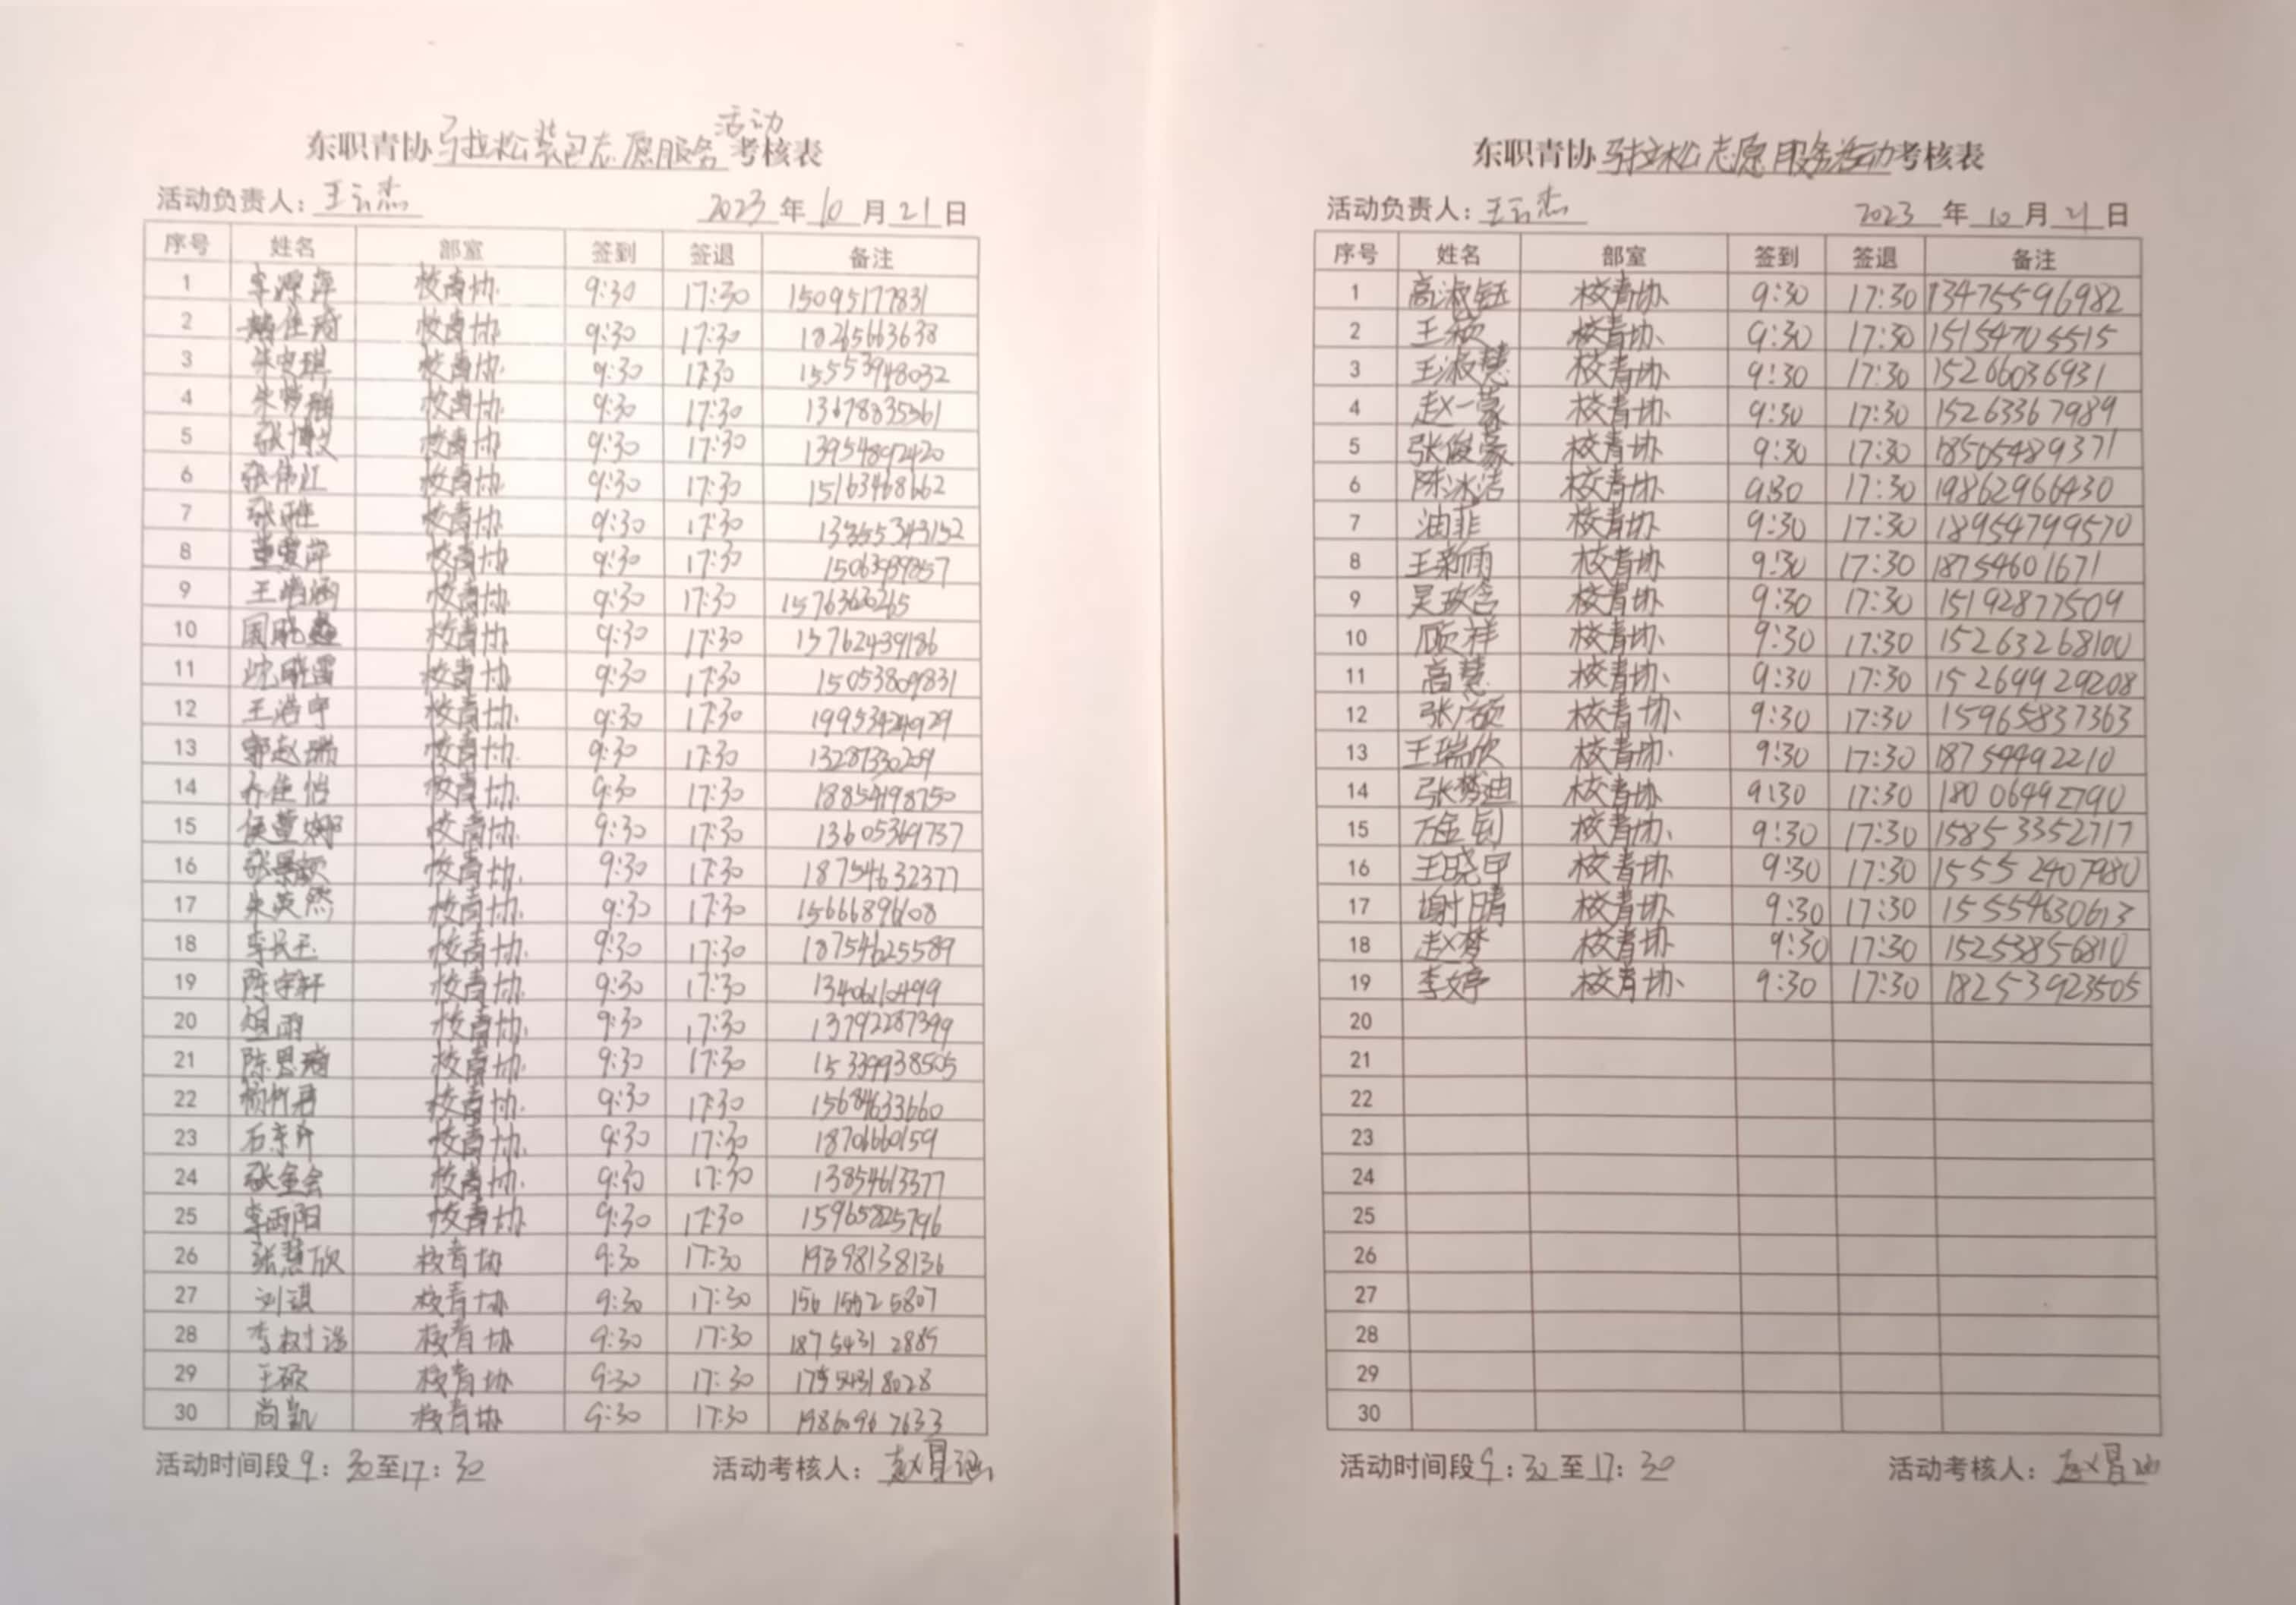 东职青协马拉松装包志愿服务活动考核表
活动负责人：王云杰 2023年10月21日
序号 姓名 部室 签到 签退 备注
1 校青协 9:30 17:30 15095177831
2 校青协 9:30 17:30 18265663638
3 校青协 9:30 17:30 15553948032
4 校青协 9:30 17:30 13678835361
5 校青协 9:30 17:30 13954892420
6 张伟江 校青协 9:30 17:30 15163468662
7 校青协 9:30 17:30
8 校青协 9:30 17:30 15063939857
9 校青协 9:30 17:30
10 校青协 9:30 17:30 15762439186
11 沈晓雷 校青协 9:30 17:30 15053809831
12 王浩宇 校青协 9:30 17:30 19953424929
13 郭赵瑞 校青协 9:30 17:30 13287330209
14 乔佳怡 校青协 9:30 17:30 18854198750
15 校青协 9:30 17:30 13605369737
16 校青协 9:30 17:30 18754632377
17 朱英然 校青协 9:30 17:30 15666896608
18 李长玉 校青协 9:30 17:30 18754625589
19 陈宇轩 校青协 9:30 17:30
20 校青协 9:30 17:30 13792287399
21 陈思琦 校青协 9:30 17:30 15339938505
22 校青协 9:30 17:30 15684633660
23 校青协 9:30 17:30
24 张金会 校青协 9:30 17:30 13854613377
25 李雨阳 校青协 9:30 17:30 15965825796
26 张慧欣 校青协 9:30 17:30 19398138136
27 刘琪 校青协 9:30 17:30
28 李树浩 校青协 9:30 17:30 18754312889
29 王硕 校青协 9:30 17:30
30 尚凯 校青协 9:30 17:30 19860967633
活动时间段9：30至17：30 活动考核人：
东职青协马拉松志愿服务活动考核表
活动负责人：王云杰 2023年10月21日
序号 姓名 部室 签到 签退 备注
1 高淑钰 校青协 9:30 17:30 13475596982
2 王颖 校青协 9:30 17:30 15154705515
3 王淑慧 校青协 9:30 17:30 15266036931
4 赵一蒙 校青协 9:30 17:30 15263367989
5 张俊豪 校青协 9:30 17:30 18505489371
6 陈冰洁 校青协 9:30 17:30 19862966430
7 油菲 校青协 9:30 17:30 18954799570
8 王新雨 校青协 9:30 17:30 18754601671
9 吴玟含 校青协 9:30 17:30 15192877509
10 顾祥 校青协 9:30 17:30 15263268100
11 高慧 校青协 9:30 17:30 15269929208
12 张广硕 校青协 9:30 17:30 15965837363
13 王瑞欣 校青协 9:30 17:30 18754492210
14 张梦迪 校青协 9:30 17:30 18006492790
15 万金钊 校青协 9:30 17:30 15853352717
16 王晓甲 校青协 9:30 17:30 15552407980
17 谢晴 校青协 9:30 17:30 15554630613
18 赵梦 校青协 9:30 17:30 15253856810
19 李婷 校青协 9:30 17:30 18253923505
20
21
22
23
24
25
26
27
28
29
30
活动时间段9：30至17：30 活动考核人：